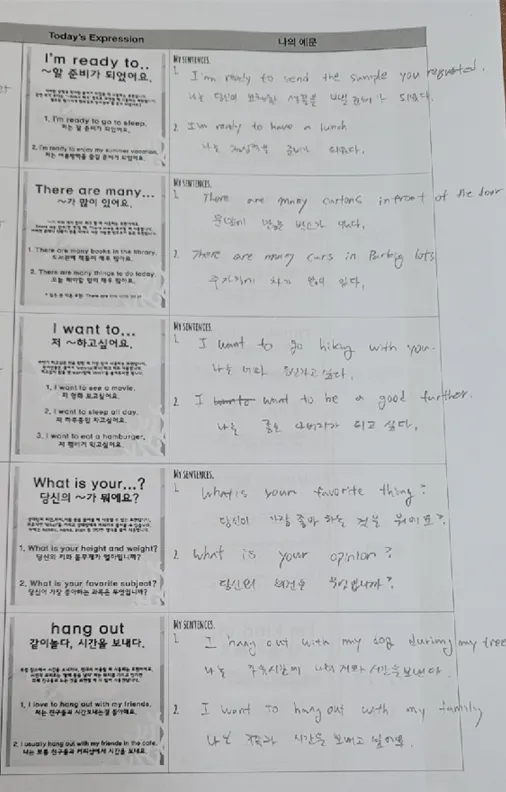 Today's Expression
나의 예문
I'm ready to..
~할 준비가 되었어요.
1. I'm ready to go to sleep.
저는 잘 준비가 되었어요.
2. I'm ready to enjoy my summer vacation.
저는 여름방학을 즐길 준비가 되었어요.
MY SENTENCES.
1. I'm ready to send the sample you requested.
나는 당신이 요청한 샘플을 보낼 준비가 되었다.
2. I'm ready to have a lunch
나는 점심먹을 준비가 되었다.
There are many...
~가 많이 있어요.
1. There are many books in the library.
도서관에 책들이 매우 많아요.
2. There are many things to do today.
오늘 해야할 일이 매우 많아요.
MY SENTENCES.
1. There are many cartons infront of the door
많은 박스가 있다.
2. There are many cars in Parking lots
주차장에 차가 많이 있다.
I want to...
저 ~하고싶어요.
1. I want to see a movie.
저 영화 보고싶어요.
2. I want to sleep all day.
저 하루종일 자고싶어요.
3. I want to eat a hamburger.
저 햄버거 먹고싶어요.
MY SENTENCES.
1. I want to go hiking with you.
나는 너와 등산가고 싶다.
2. I want to want to be a good further.
나는 좋은 아버지가 되고 싶다.
What is your...?
당신의 ~가 뭐에요?
1. What is your height and weight?
당신의 키와 몸무게가 얼마입니까?
2. What is your favorite subject?
당신이 가장 좋아하는 과목은 무엇입니까?
MY SENTENCES.
1. What is your favorite thing?
당신이 가장 좋아 하는 것은 뭐에요?
2. What is your opinion?
당신의 의견은 무엇입니까?
hang out
같이놀다, 시간을 보내다.
1. I love to hang out with my friends.
저는 친구들과 시간보내는걸 좋아해요.
2. I usually hang out with my friends in the cafe.
나는 보통 친구들과 커피샵에서 시간을 보내요.
MY SENTENCES.
1. I hang out with my dog during my free
나는 자유시간에 나의 개와 시간을 보내다.
2. I want to hang out with my family
나는 가족과 시간을 보내고 싶어요.